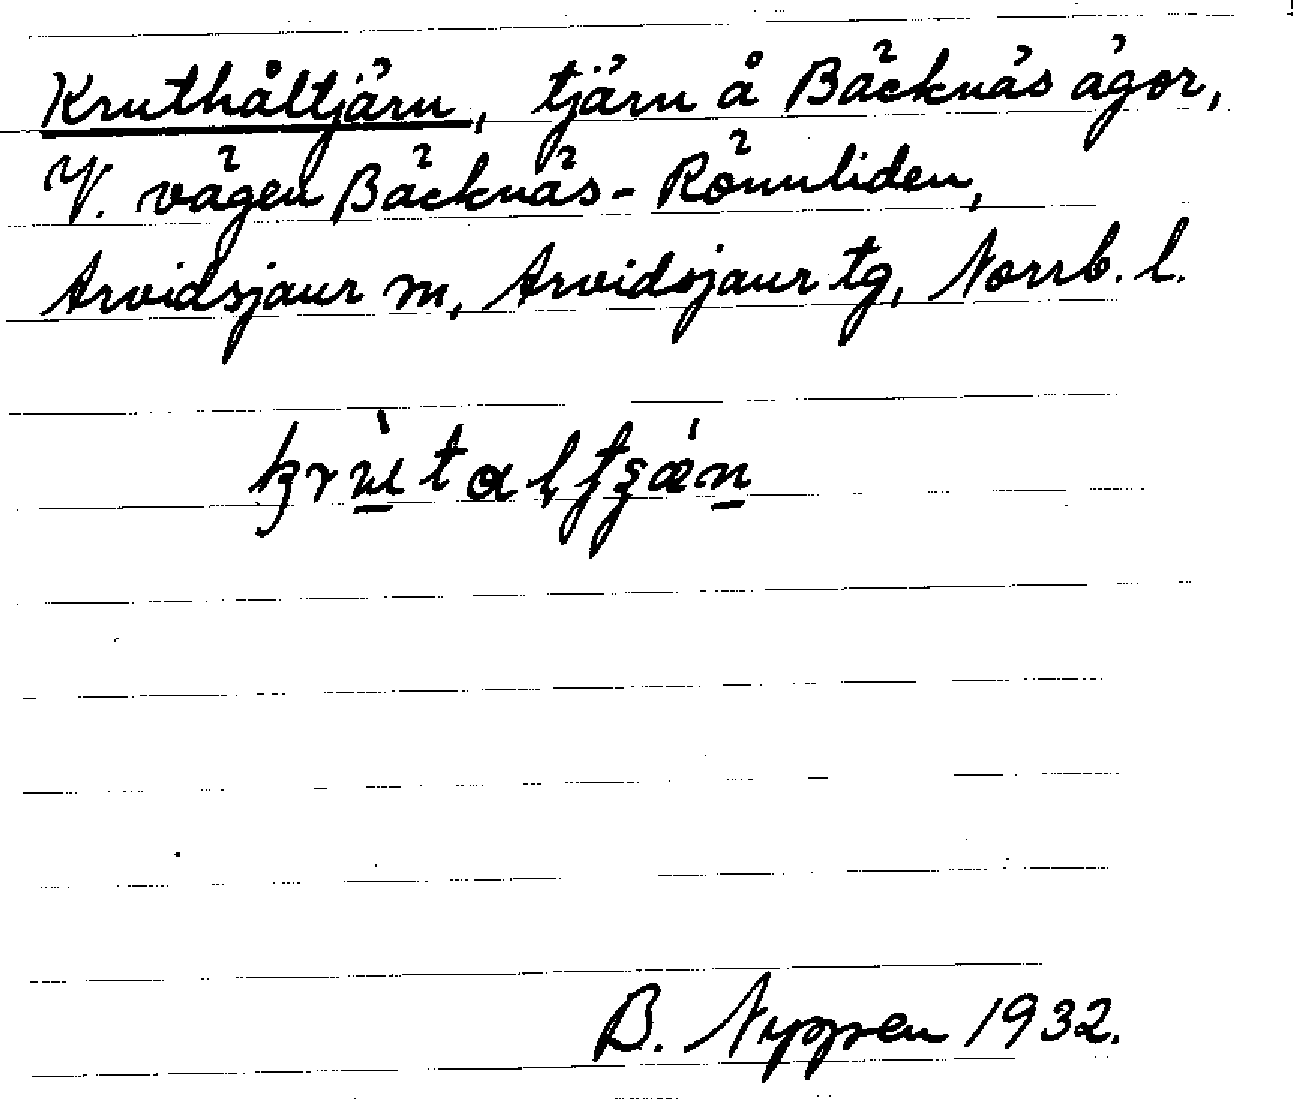 Kruthåltjärn, tjärn å Bäcknäs ägor,
V. vägen Bäcknäs-Rönnliden,
Arvidsjaur sn, Arvidsjaur tg, Norrb. l.
B. Nyppen 1932.